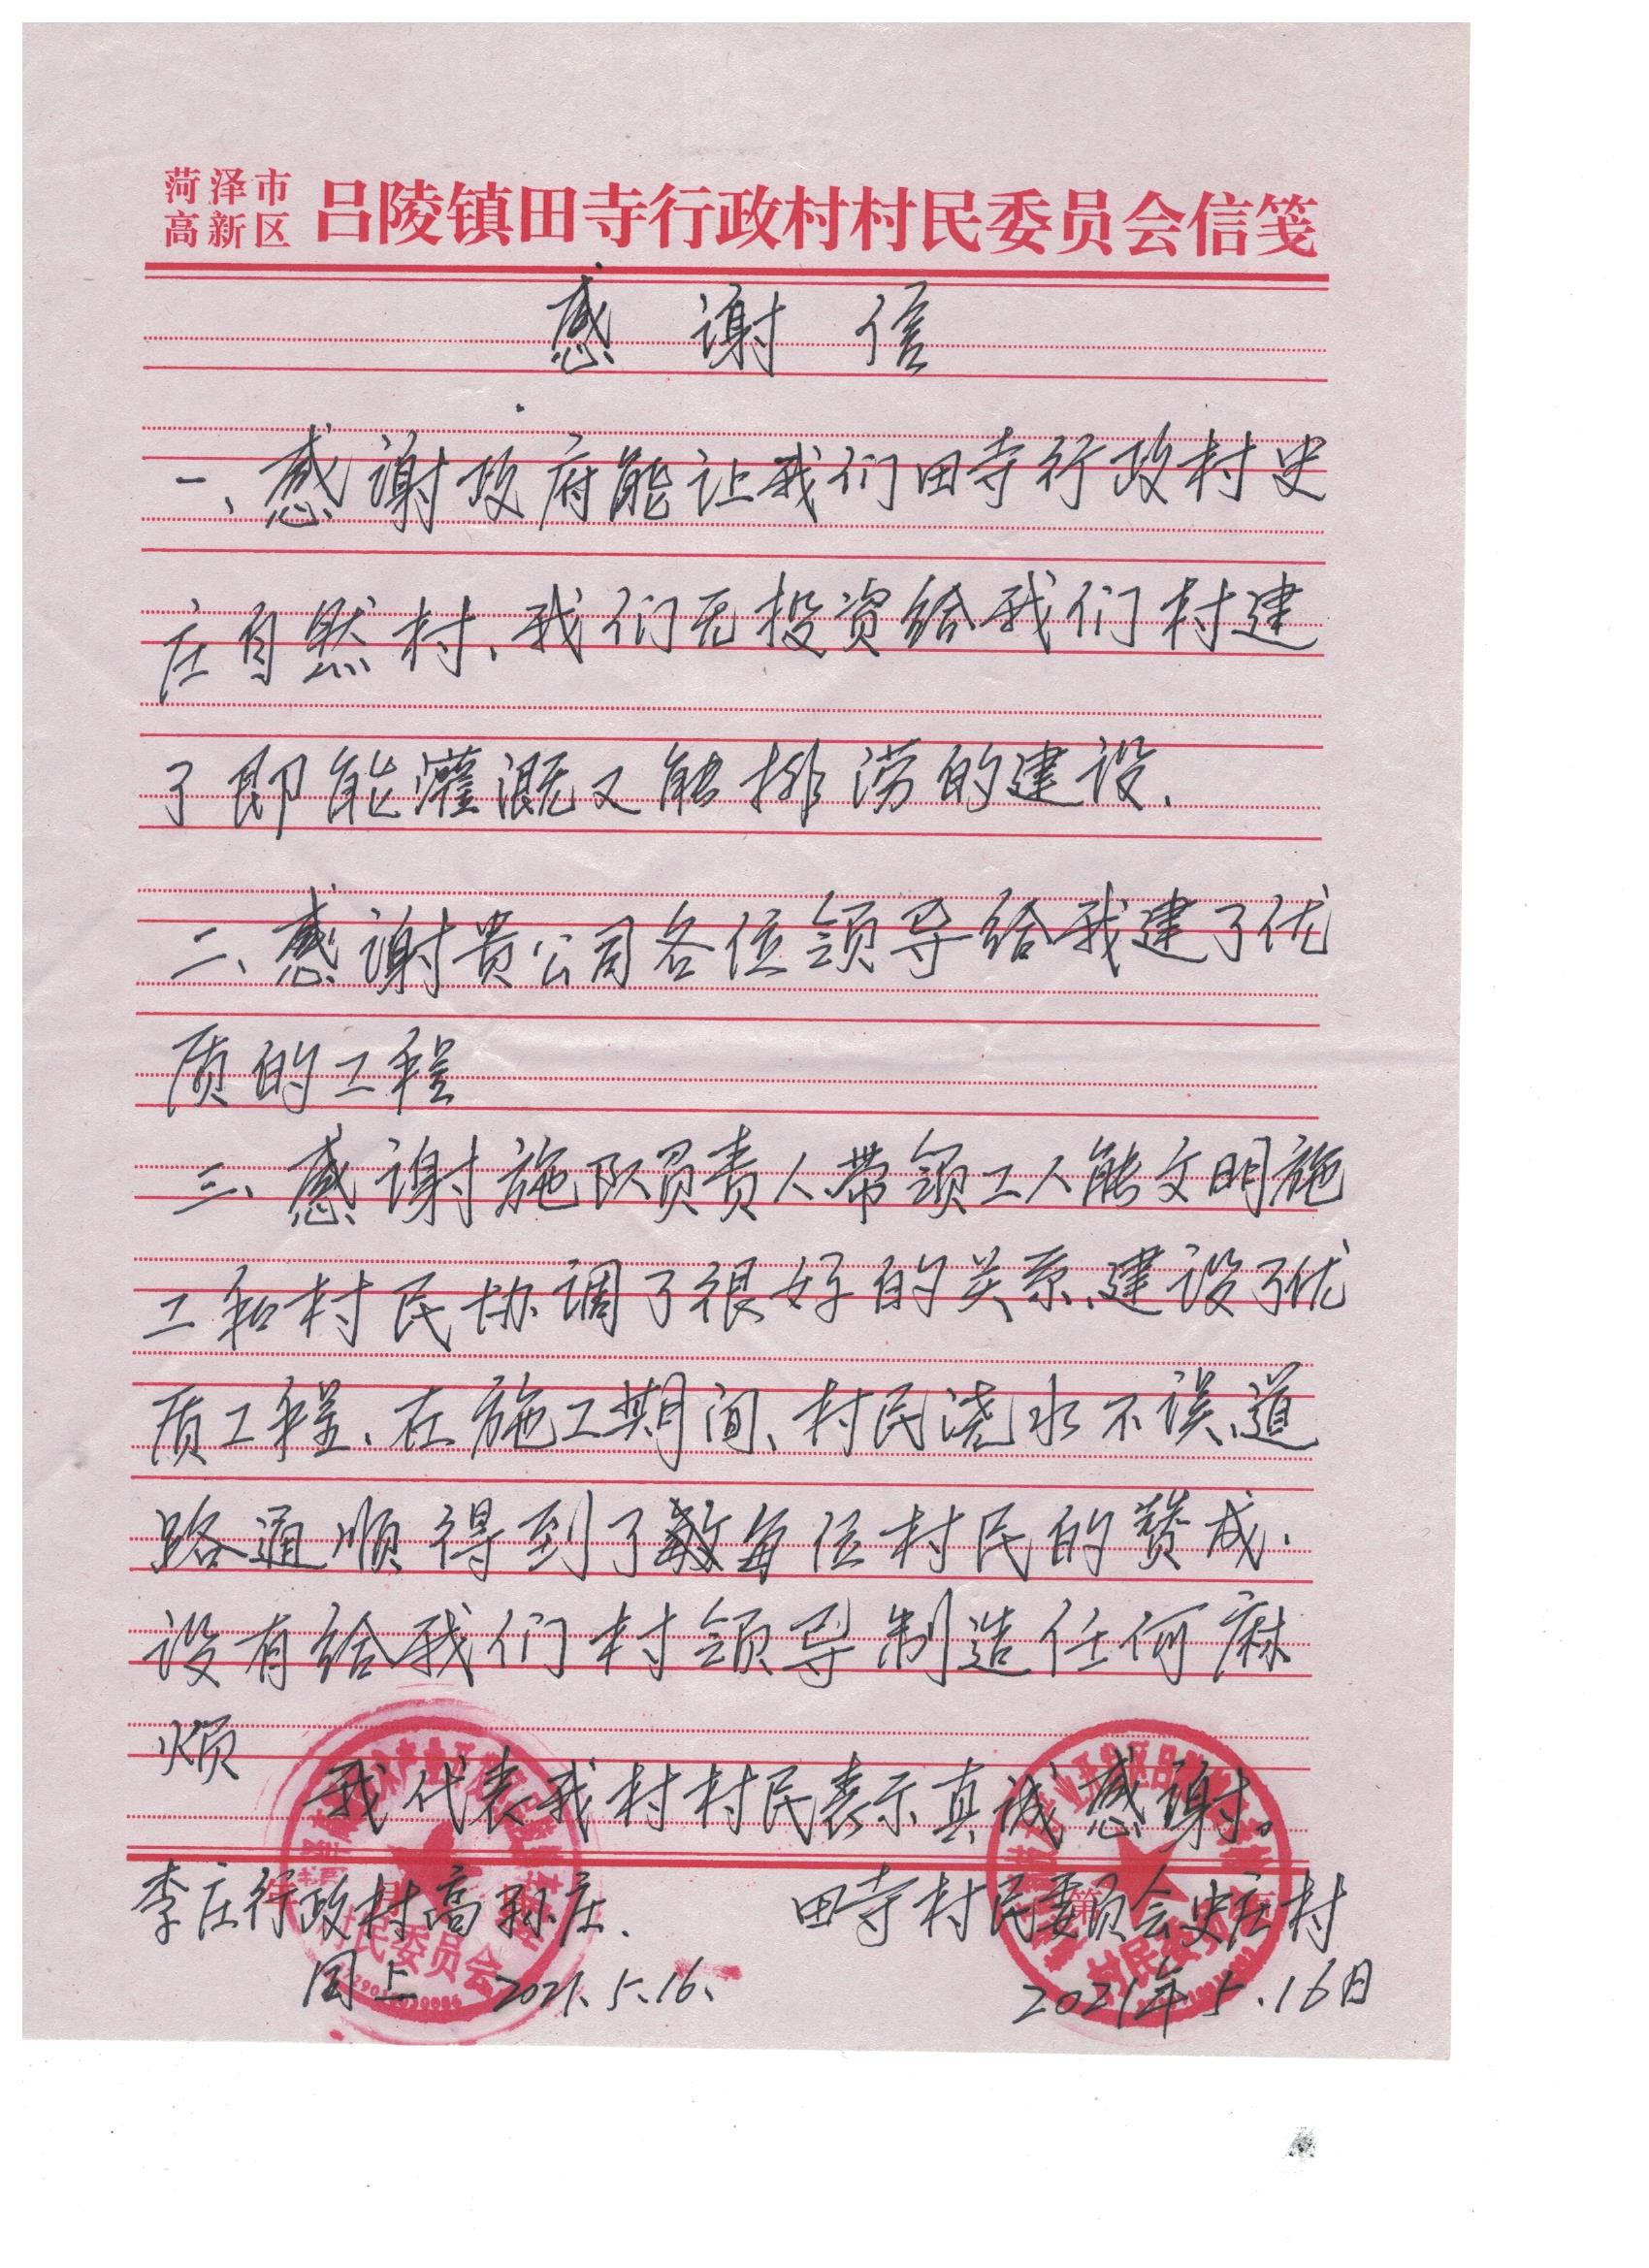 菏泽市
高新区 吕陵镇田寺行政村村民委员会信笺
感谢信
一、感谢政府能让我们田寺行政村史
庄自然村、我们无投资给我们村建
了即能灌溉又能排涝的建设、
二、感谢贵公司各位领导给我建了优
质的工程
三、感谢施队员责人带领工人能文明施
工和村民协调了很好的关系、建设了优
质工程、在施工期间、村民浇水不误、道
路通顺得到了每位村民的赞成、
没有给我们村领导制造任何麻
烦
我代表我村村民表示真诚感谢。
李庄行政村高孙庄、 田寺村民委员会史庄村
同上 2021.5.16、 2021年5.16日
村民委员会
村民委员会